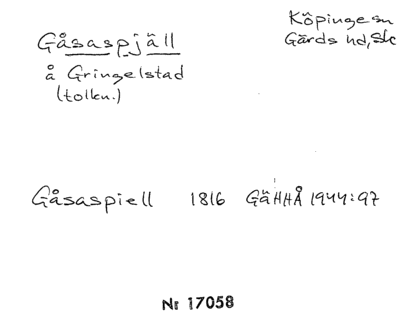 Gåsaspjäll
Köpinge sn
Gärds hd, Sk
å Gringelstad
(tolkn.)
Gåsaspiell 1816 GäHHÅ 1944:97
Nr 17058